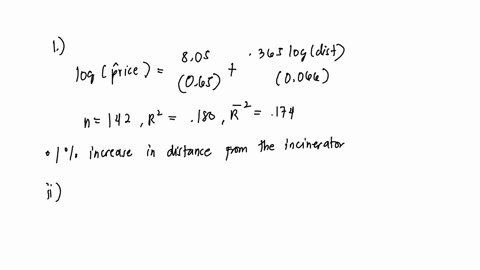 1.)
log(p̂rice) = 8.05 + .365 log(dist)
(0.65) (0.066)
n = 142, R² = .180, R̄² = .174
• 1% increase in distance from the incinerator
ii)